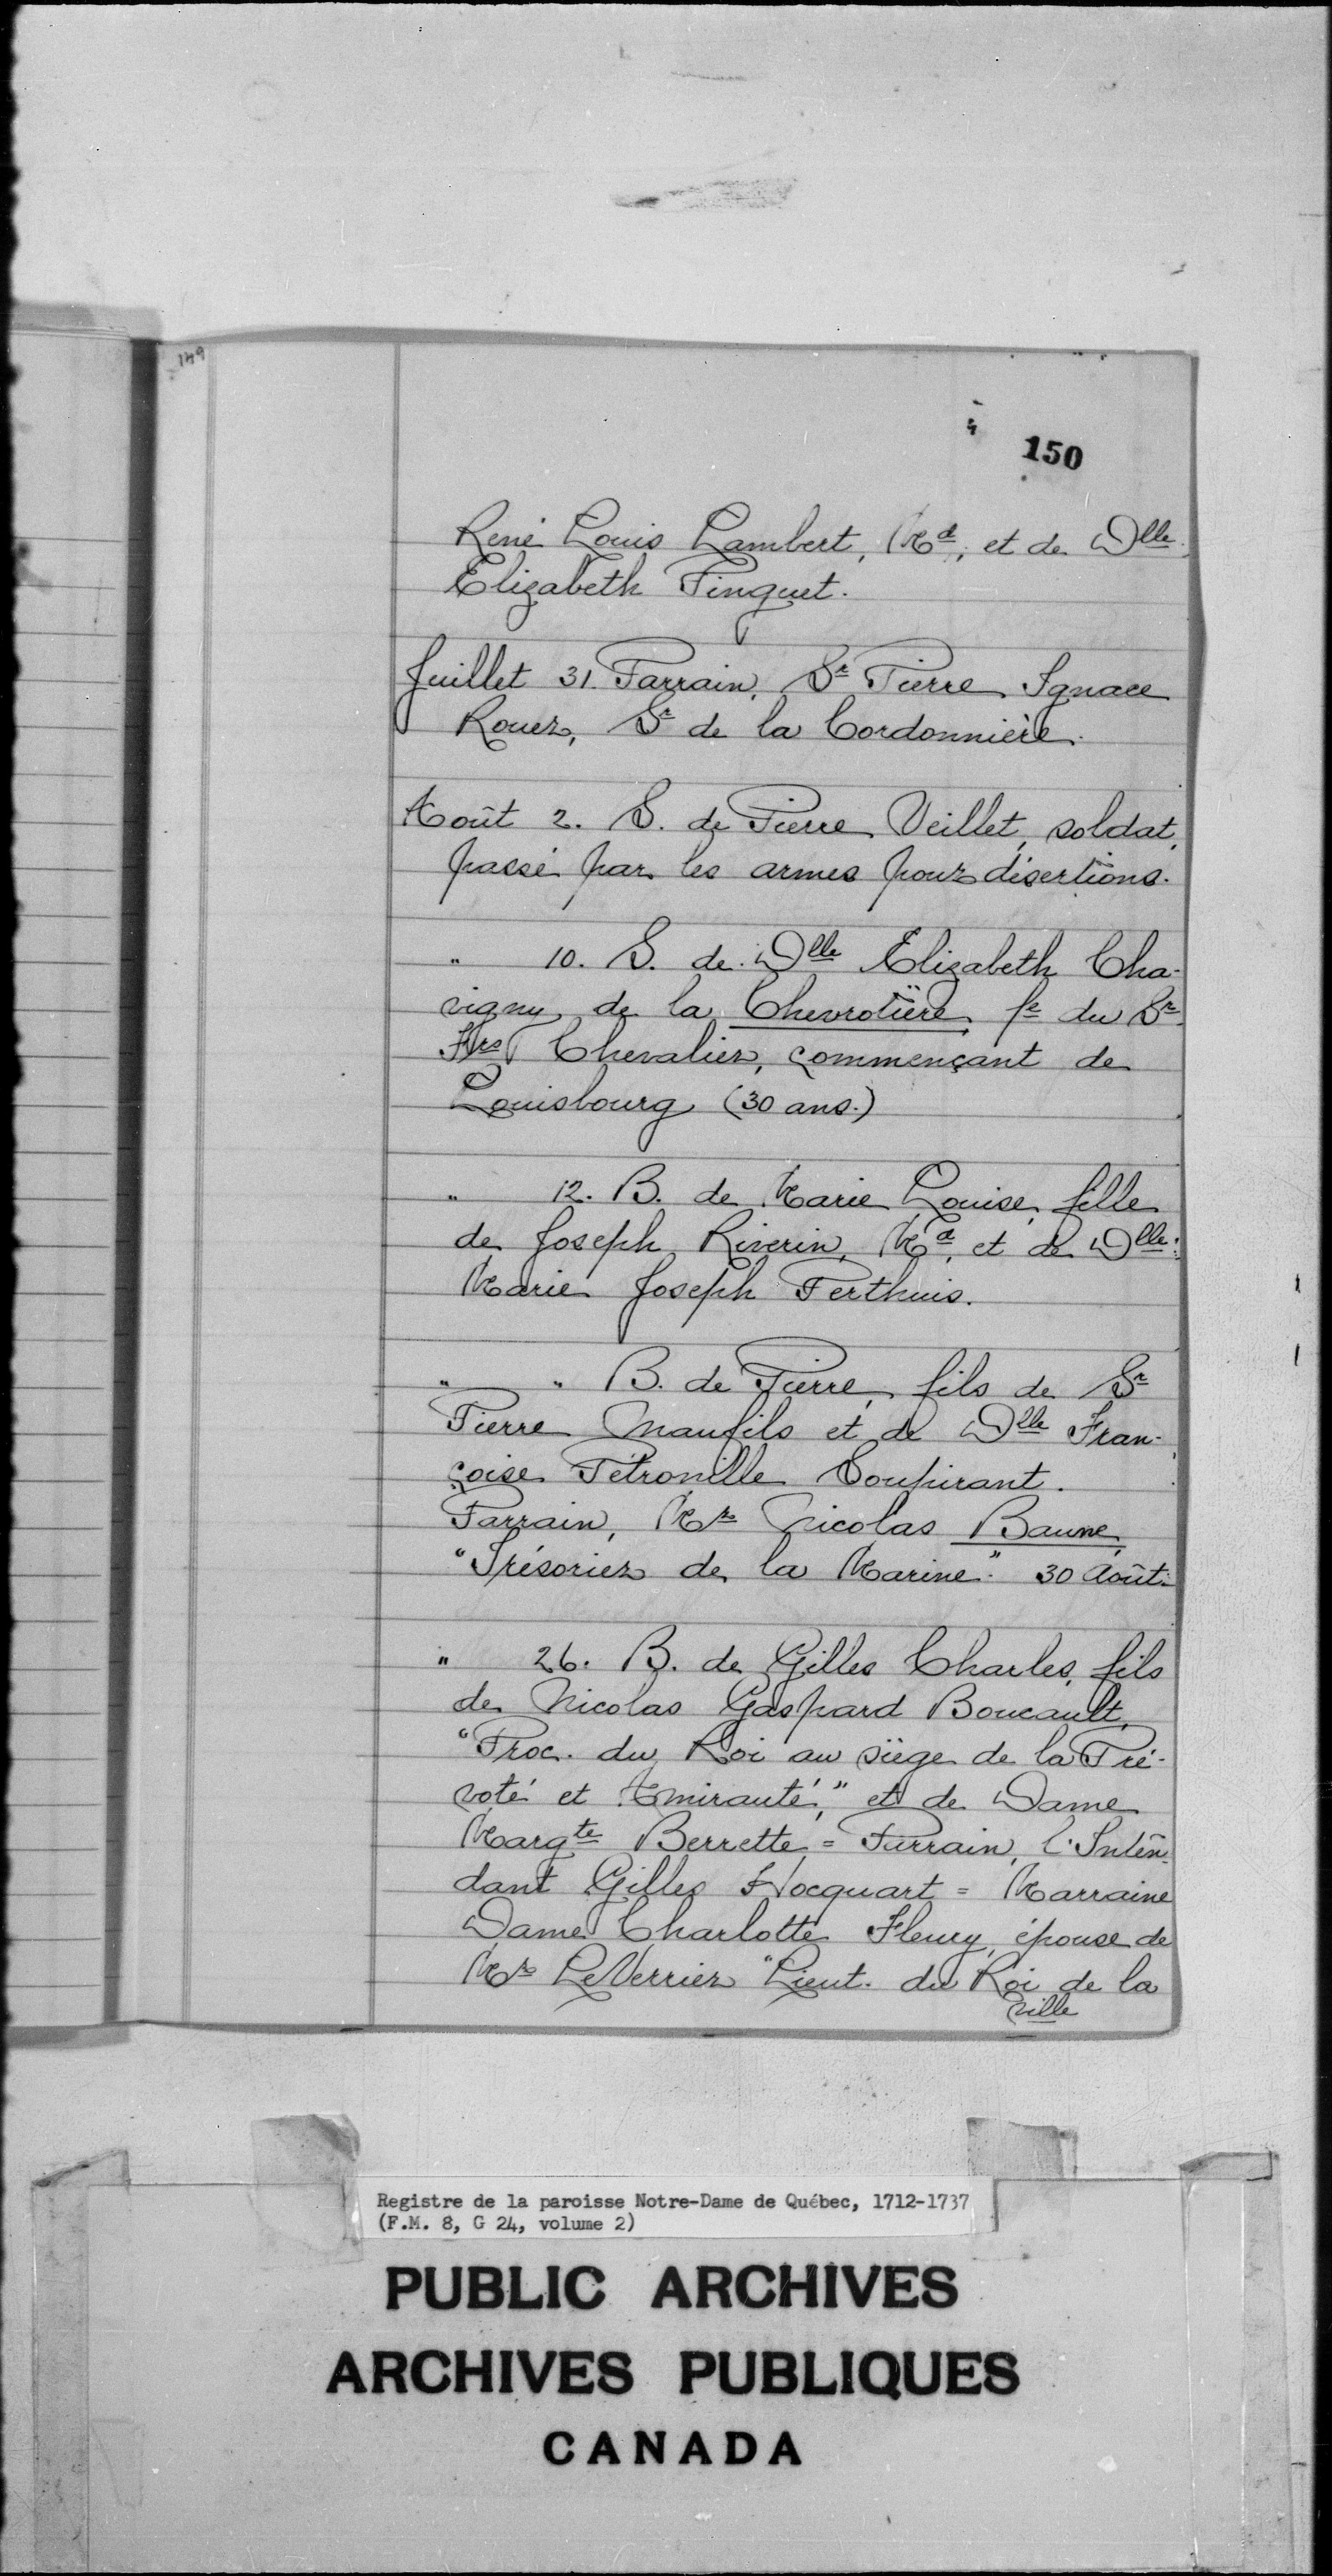 149
150
René Louis Lambert, Md, et de Dlle
Elizabeth Pinguet.
Juillet 31. Parrain, Sr Pierre Ignace
Rouer, Sr de la Cordonnière.
Août 2. S. de Pierre Veillet, soldat,
passé par les armes pour désertions.
" 10. S. de Dlle Elizabeth Cha-
vigny de la Chevrotière, fe du Sr
Frs Chevalier, commençant de
Louisbourg (30 ans.)
" 12. B. de Marie Louise, fille
de Joseph Riverin, Md, et de Dlle
Marie Joseph Perthuis.
" " B. de Pierre, fils de Sr
Pierre Maufils et de Dlle Fran-
çoise Pétronille Soupirant.
Parrain, Mr Nicolas Baune,
"Trésorier de la Marine." 30 Août.
" 26. B. de Gilles Charles, fils
de Nicolas Gaspard Boucault,
"Proc. du Roi au siège de la Pré-
voté et Amirauté," et de Dame
Margte Berrette = Parrain, l'Inten-
dant Gilles Hocquart = Marraine
Dame Charlotte Fleury, épouse de
Mr LeVerrier "Lieut. du Roi de la
ville
Registre de la paroisse Notre-Dame de Québec, 1712-1737
(F.M. 8, G 24, volume 2)
PUBLIC ARCHIVES
ARCHIVES PUBLIQUES
CANADA